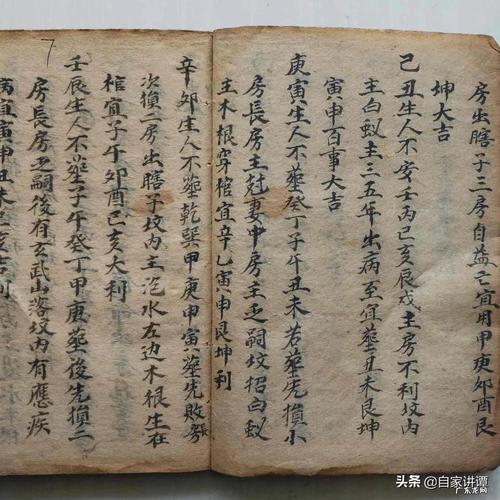 房出瞎子三房自益亡宜用甲庚卯酉艮
坤大吉
己丑生人不安壬丙己亥辰戌主房不利坟內
主白蚁主三五年出病至宜塟丑未艮坤
寅申百事大吉
庚寅生人不塟癸丁子午丑未若塟先損小
房長房主尅妻中房主乏嗣坟招白蚁
主木根穿棺宜辛乙寅申艮坤利
辛卯生人不塟乾巽甲庚申寅塟先敗長
次損二房出瞎子坟內主泡水左边木根生在
棺宜子午卯酉己亥大利
壬辰生人不塟子午癸丁甲庚塟後先損二
房長房乏嗣後有玄武山落坟內有應疾
病宜寅申丑未己亥吉利
7
头条 @自家讲谭
广东龙网